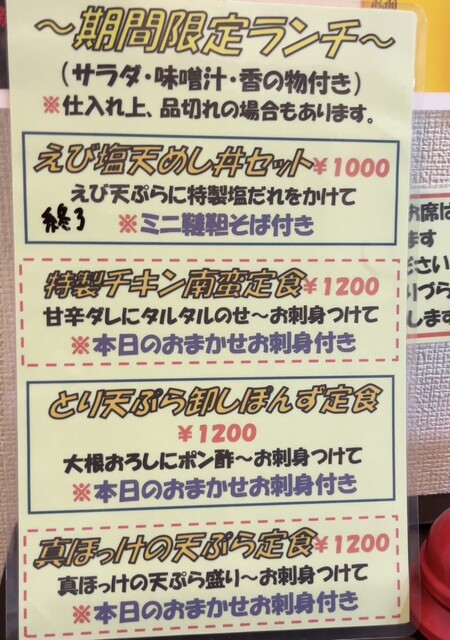 ～期間限定ランチ～
(サラダ・味噌汁・香の物付き)
※仕入れ上、品切れの場合もあります。
えび塩天めし丼セット¥1000
えび天ぷらに特製塩だれをかけて
終了 ※ミニ韃靼そば付き
特製チキン南蛮定食¥1200
甘辛ダレにタルタルのせ～お刺身つけて
※本日のおまかせお刺身付き
とり天ぷら卸しぽんず定食
¥1200
大根おろしにポン酢～お刺身つけて
※本日のおまかせお刺身付き
真ほっけの天ぷら定食¥1200
真ほっけの天ぷら盛り～お刺身つけて
※本日のおまかせお刺身付き
お席は
ます
ださい
りづら
します